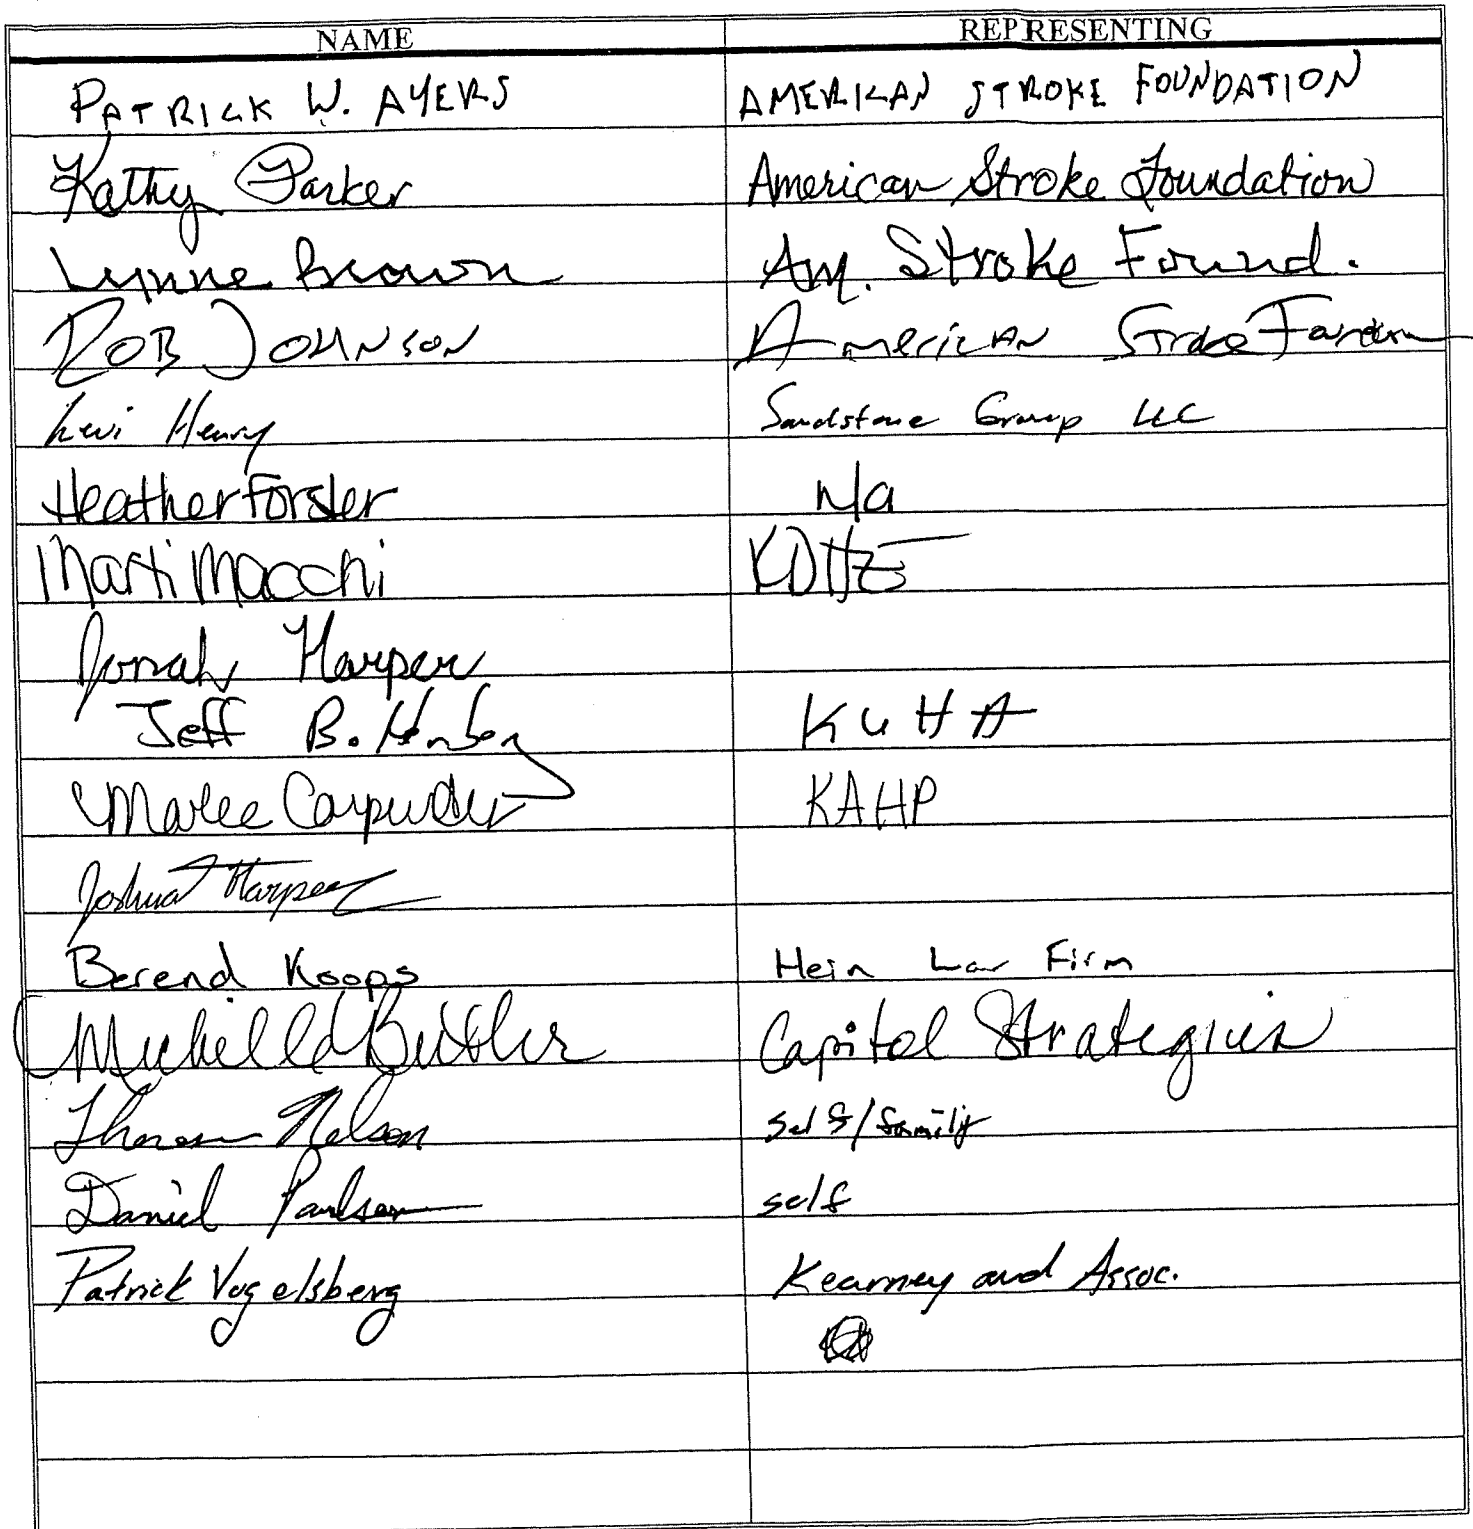 NAME REPRESENTING
PATRICK W. AYERS AMERICAN STROKE FOUNDATION
Kathy Parker American Stroke Foundation
Lynne Brown Am. Stroke Found.
ROB JOHNSON AmericAN Stroke
Levi Henry Sandstone Group LLC
Heather Forsler n/a
Marti Macchi KDHE
Jonah Harper
Jeff B. KUHA
Marlee Carpenter KAHP
Joshua Harper
Berend Koops Hein Law Firm
Michelle Butler Capitol Strategies
Nelson self/family
Daniel Paulsen self
Patrick Vogelsberg Kearney and Assoc.